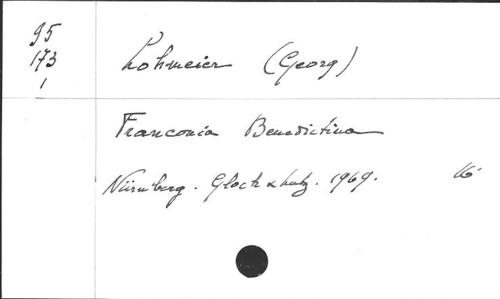 95
173
1
Lohmeier (Georg)
Franconia Benedictina
Nürnberg. Glock & Lutz. 1969. 16°